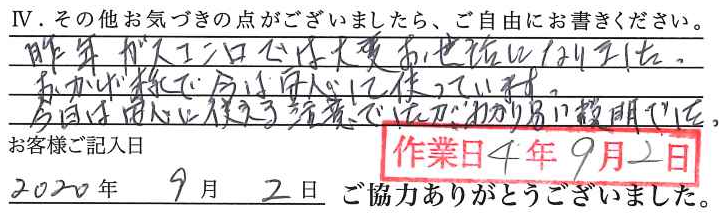 Ⅳ．その他お気づきの点がございましたら、ご自由にお書きください。
昨年ガスコンロでは大変お世話になりました。
おかげ様で今は安心して使っています。
今回は安心に使える注意でしたがわかり易い説明でした。
お客様ご記入日
作業日4年9月2日
2020年 9月 2日 ご協力ありがとうございました。